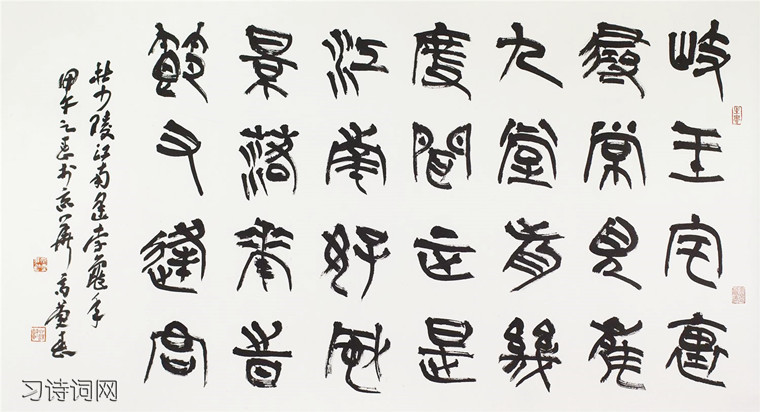 岐王宅裏
尋常見崔
九堂前幾
度聞正是
江南好風
景落華旹
節又逢君
杜少陵江南逢李龜年
甲午之春於京華高慶春
习诗词网